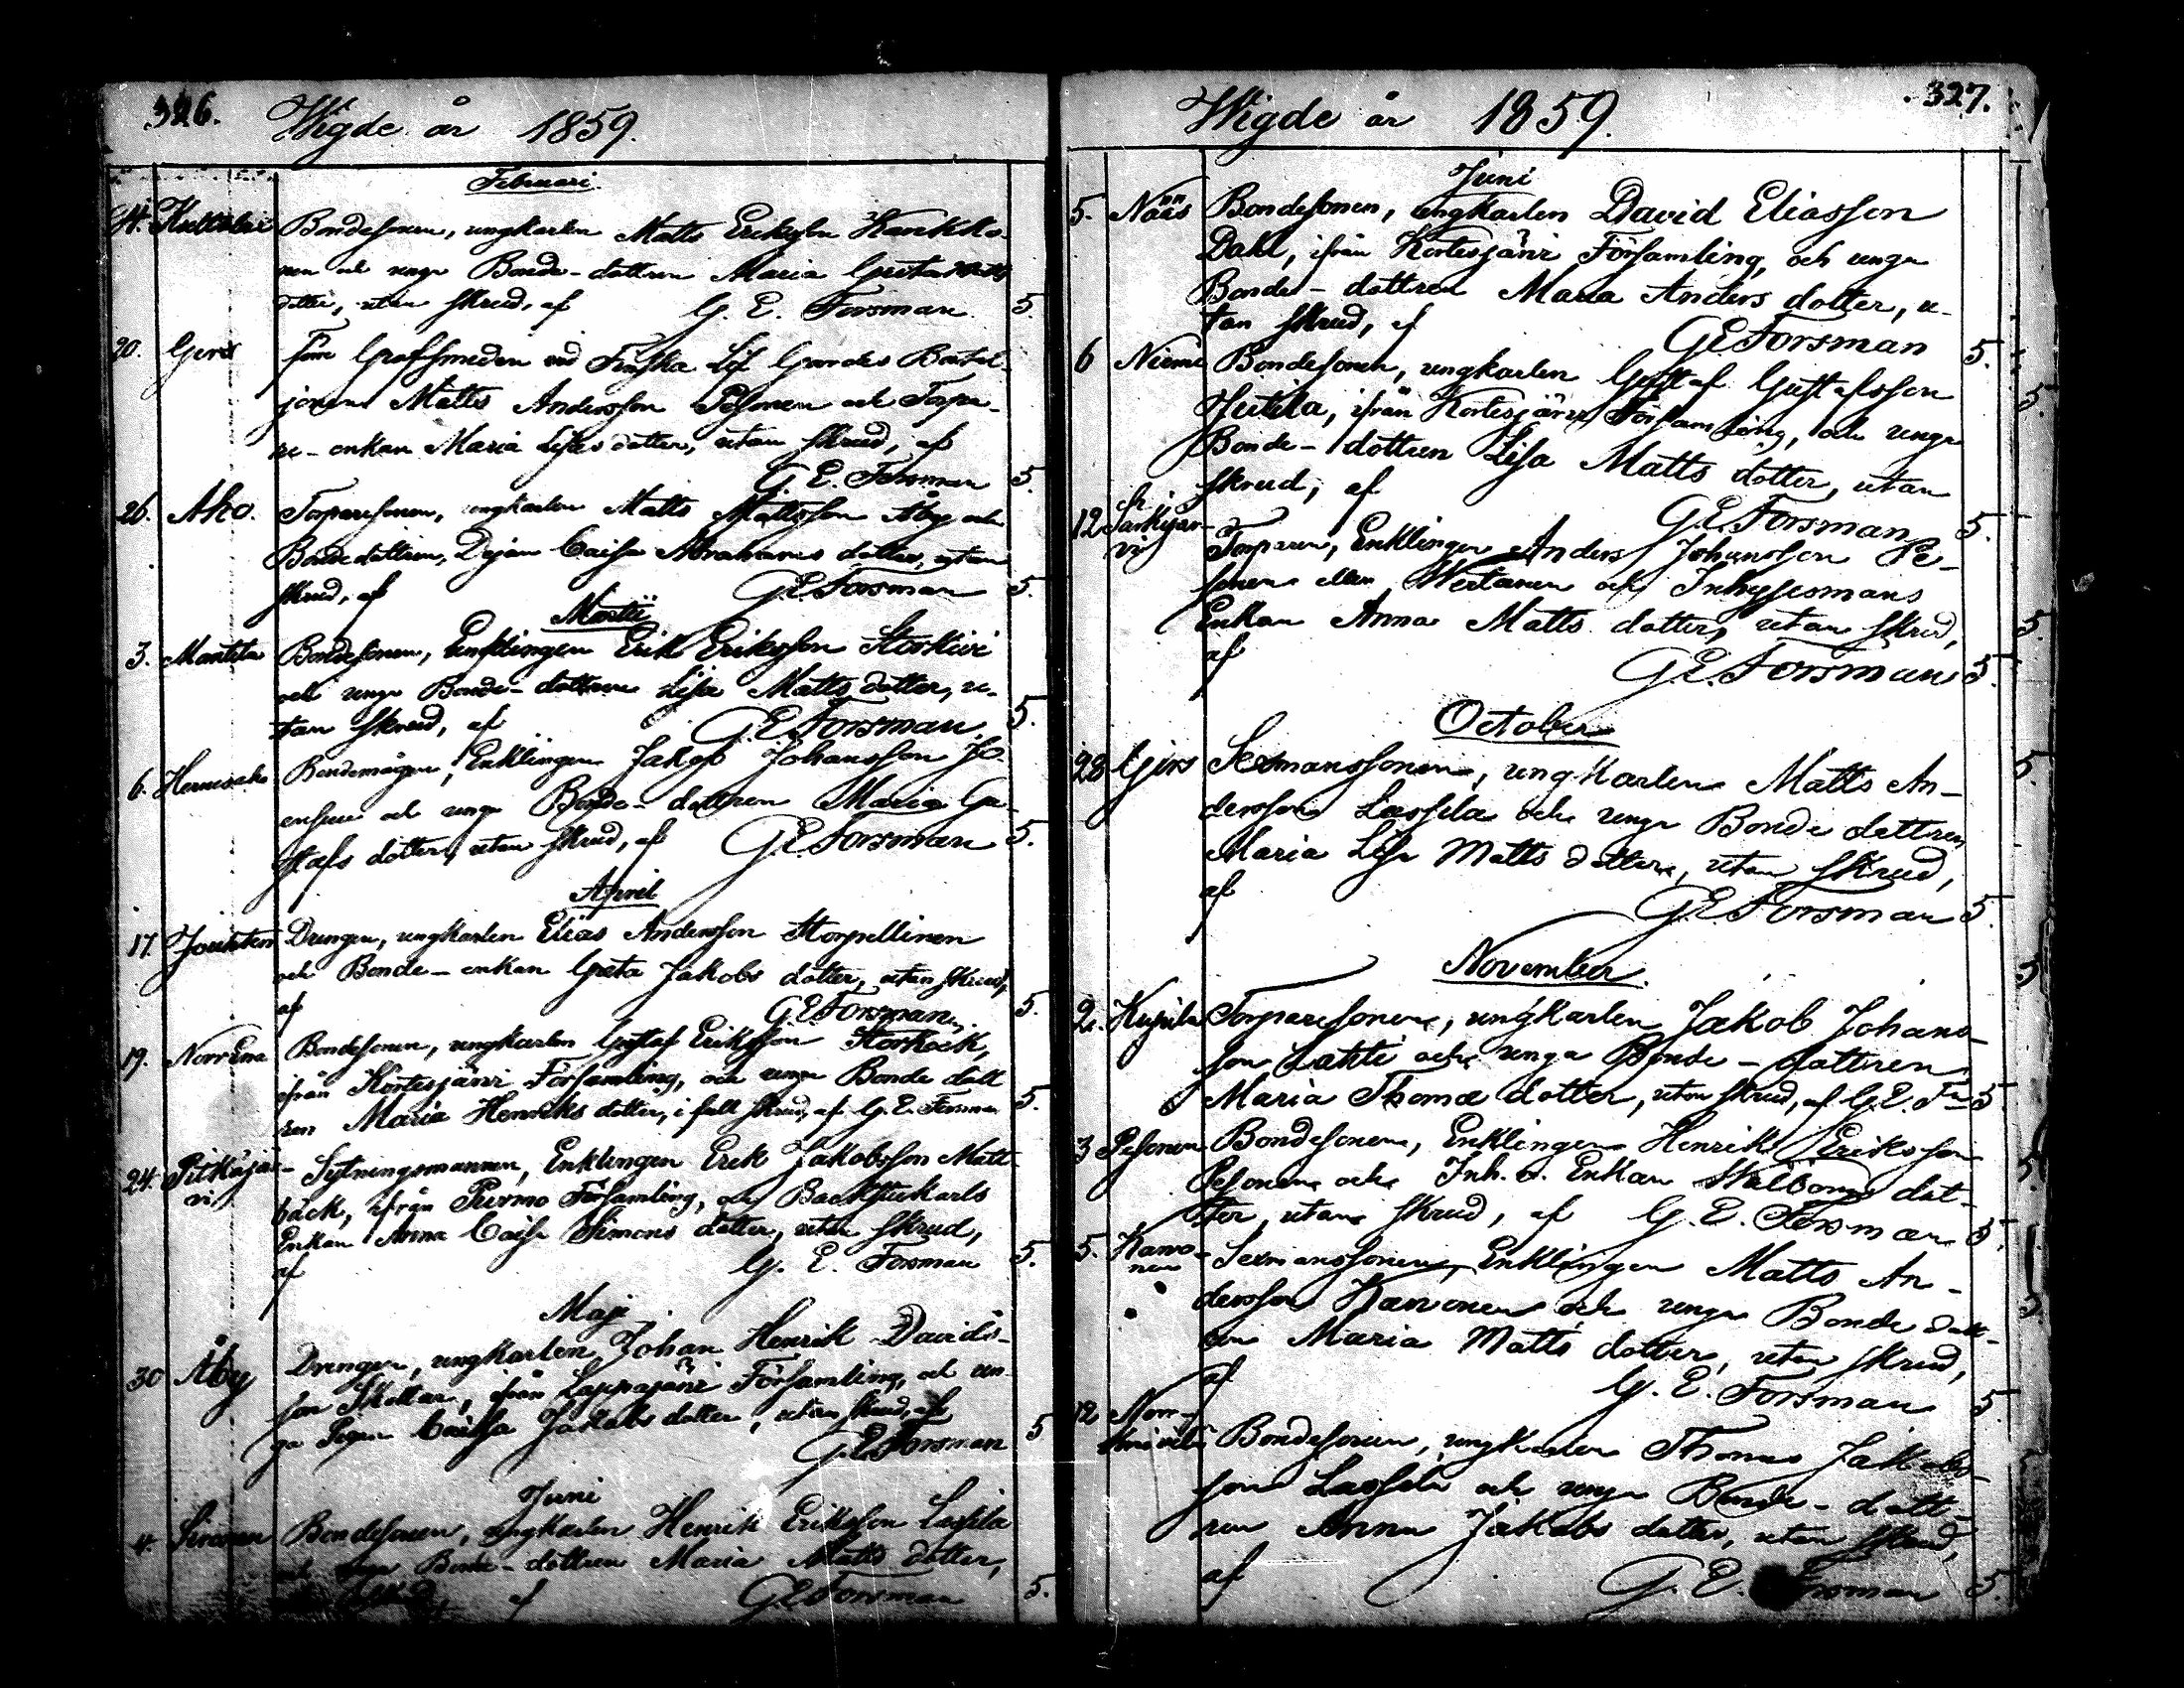 326.
Wigde år 1859.
Februari
14. Bondesonen, ungkarlen Matts Eriksson
nen och unga Bonde-dottren Maria Greta Matts
dotter, utan skrud, af G. E. Forsman 5.
20. Förre Grofsmeden vid Finska Lif Gardes
Matts Andersson Pesonen och Torpa-
re-enkan Maria dotter, utan skrud, af
G. E. Forsman 5.
26. Aho. Torparesonen, ungkarlen Matts Mattsson Åby och
Bondedottren, Dejan Caisa Abrahams dotter, utan
skrud, af G. E. Forsman 5.
Martii
3. Mantila Bondesonen, Enklingen Erik Eriksson Storkivi
och unga Bonde-dottren Lisa Matts dotter, u-
tan skrud, af G. E. Forsman 5.
6. Hernesaho Bondemågen, Enklingen Jakob Johansson
och unga Bonde-dottren Maria Gu-
stafs dotter, utan skrud, af G. E. Forsman 5.
April
17. Drengen, ungkarlen Elias Andersson Storpellinen
och Bonde-enkan Greta Jakobs dotter, utan skrud,
af G. E. Forsman 5.
19. Norrena Bondesonen, ungkarlen Gustaf Eriksson
ifrån Kortesjärvi Församling, och unga Bonde dott
ren Maria Henriks dotter, i full skrud, af G. E. Forsman 5.
24. Pitkäjär-
vi Sytningsmannen, Enklingen Erik Jakobsson Matt-
bäck, ifrån Purmo Församling, och Backstukarls
Enkan Anna Caisa Simons dotter, utan skrud,
af G. E. Forsman 5.
Maji
30 Åby Drengen, ungkarlen Johan Henrik Davids-
son ifrån Lappajärvi Församling, och un-
ga Pigan Caisa Jakobs dotter, utan skrud, af
G. E. Forsman 5
Juni
4. Sironen Bondesonen, ungkarlen Henrik Eriksson Lassila
och unga Bonde-dottren Maria Matts dotter,
utan skrud, af G. E. Forsman 5.
327.
Wigde år 1859.
Juni
5. Näs Bondesonen, ungkarlen David Eliasson
Dahl, ifrån Kortesjärvi Församling, och unga
Bonde-dottren Maria Anders dotter, u-
tan skrud, af G. E. Forsman 5.
6 Niemi Bondesonen, ungkarlen Gustaf Gustafsson
ifrån Kortesjärvi Församling, och unga
Bonde-dottren Lisa Matts dotter, utan
skrud, af G. E. Forsman 5.
12 Särkijär-
vi Torparen, Enklingen Anders Johansson Pe-
sonen eller Wertanen och Inhysesmans
Enkan Anna Matts dotter, utan skrud,
af G. E. Forsman 5.
October
28 Gers Sexmanssonen, ungkarlen Matts An-
dersson Lassila och unga Bonde dottren
Maria Lisa Matts dotter, utan skrud,
af G. E. Forsman 5
November.
2. Kujala Torparesonen, ungkarlen Jakob Johans-
son Lahti och unga Bonde-dottren
Maria Thomæ dotter, utan skrud, af G. E. Fn 5
3 Pesonen Bondesonen, Enklingen Henrik Eriksson
Pesonen och Inh. Enkan dot-
ter, utan skrud, af G. E. Forsman 5.
5. Karvo-
nen Sexmanssonen, Enklingen Matts An-
dersson Karvonen och unga Bonde dott-
ren Maria Matts dotter, utan skrud,
af G. E. Forsman 5.
12 Norr-
Bondesonen, ungkarlen Thomas Jakobs-
son Lassila och unga Bonde-dott-
ren Anna Jakobs dotter, utan skrud,
af G. E. Forsman 5.